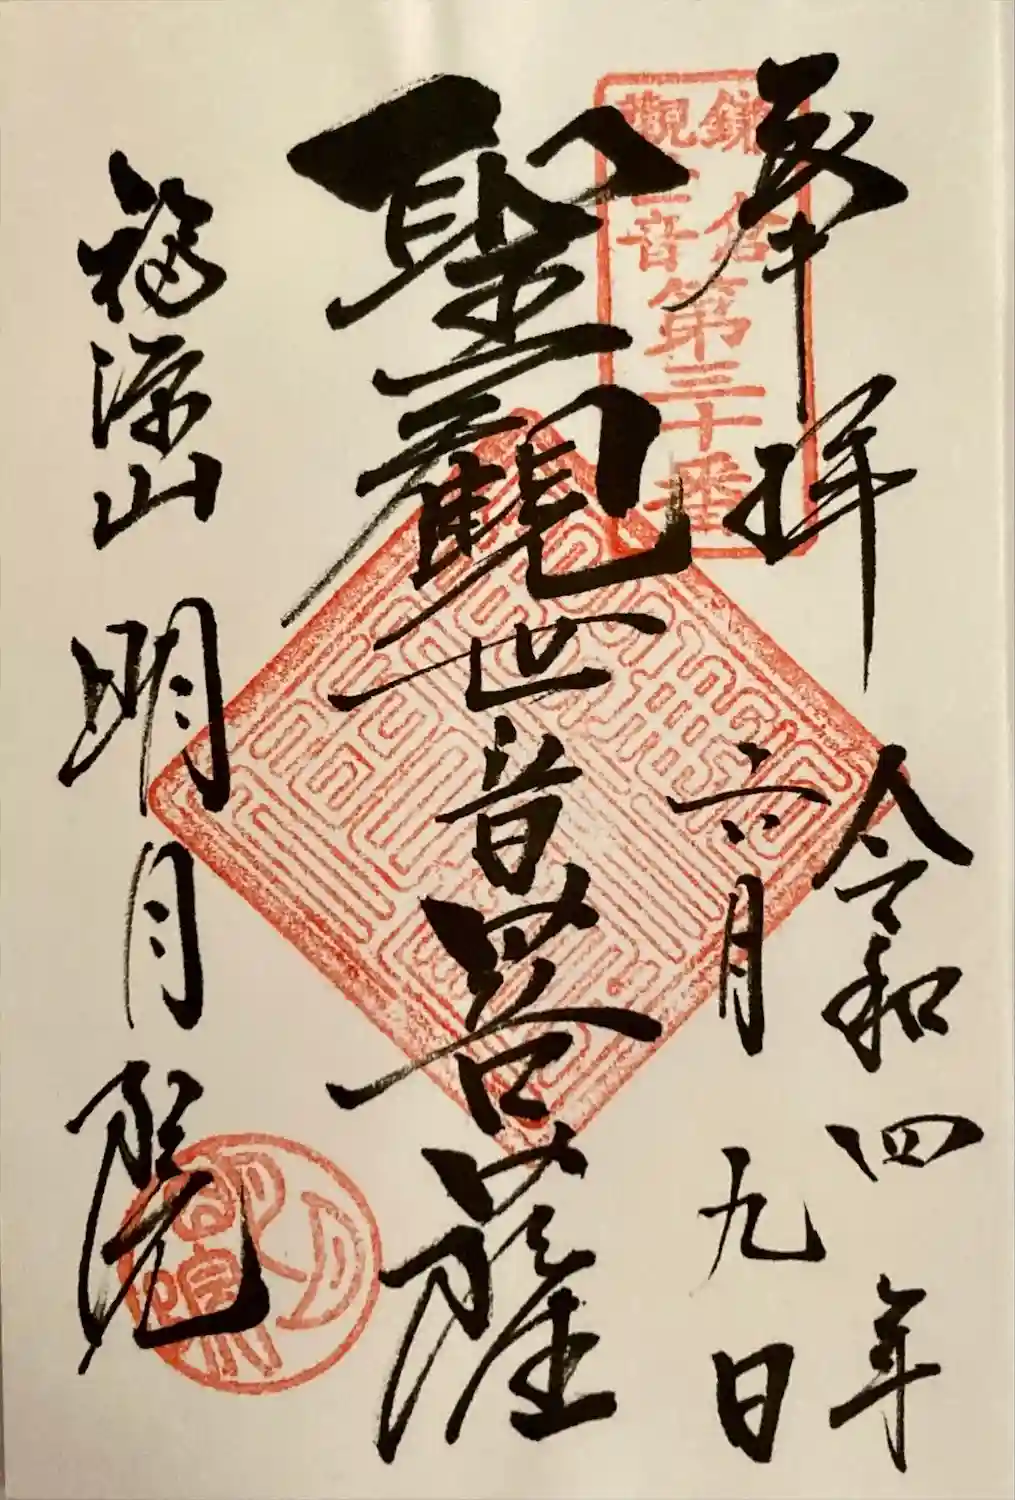 奉拝
令和四年
六月九日
鎌倉
観音
第三十番
聖観世音菩薩
福源山 明月院